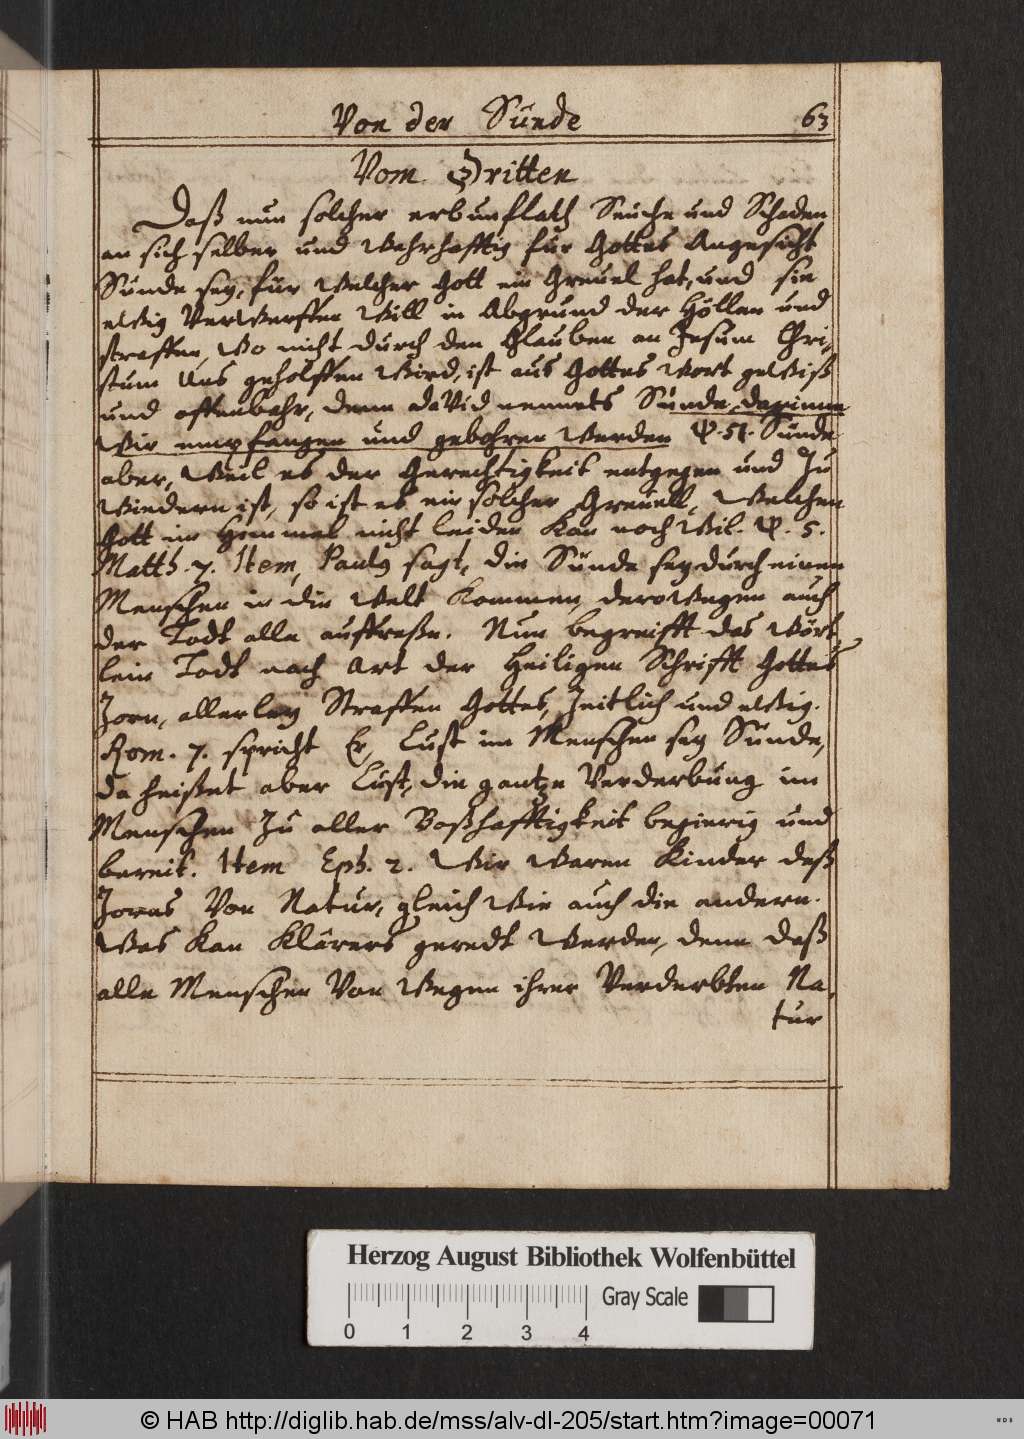 Von der Sünde 63
Vom Dritten
Daß nun solcher erbunflath Seuche und Schaden
an sich selber und Wahrhafftig für Gottes Angesicht
Sünde sey, für Welcher Gott ein Greuel hat, und sie
eWig VerWerffen Will in Abgrund der Höllen und
straffen, Wo nicht durch den Glauben an Jesum Chri,
stum Uns geholffen Wird, ist aus Gottes Wort geWiß
und offenbahr, denn daVid nennets Sünde, darinne
Wir empfangen und gebohren Werden Ψ. 51. Sünde
aber, Weil es der Gerechtigkeit entgegen und Zu
Wiedern ist, so ist es ein solcher Greuell, Welchen
Gott im Himmel nicht leiden Kan noch Wil. Ψ. 5.
Matth. 7. Item, Paulus sagt, die Sünde sey durch einen
Menschen in die Welt Kommen, deroWegen auch
der Todt alle auffreße. Nun begreifft das Wört,
lein Todt nach Art der Heiligen Schrifft Gottes
Zorn, allerley Straffen Gottes, Zeitlich und eWig.
Rom. 7. spricht Er, Lust im Menschen sey Sünde,
da heißet aber Lust, die gantze Verderbung im
Menschen Zu aller Boßhafftigkeit begierig und
bereit. Item Eph. 2. Wir Waren Kinder deß
Zorns Von Natur, gleich Wie auch die andern.
Was Kan Klärers geredt Werden, denn daß
alle Menschen Von Wegen ihrer Verderbten Na,
tur
Herzog August Bibliothek Wolfenbüttel
Gray Scale
0 1 2 3 4
© HAB http://diglib.hab.de/mss/alv-dl-205/start.htm?image=00071